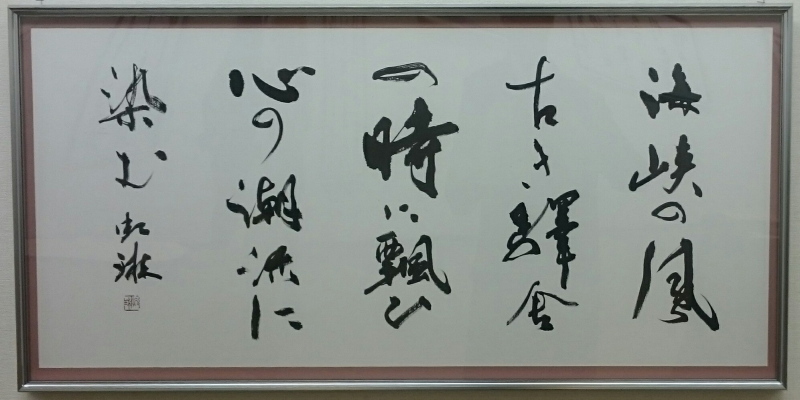 海峡の風
古き驛舎
一時に飄ひ
心の潮流に
染む 虹琳